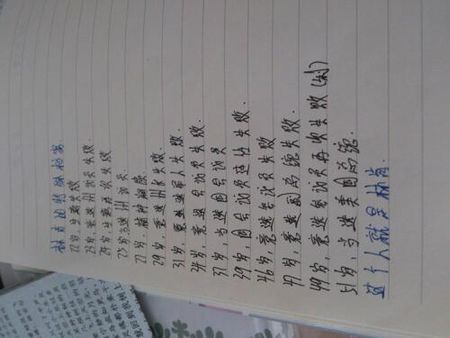 林肯的
22岁，生意失败
23岁，竞选州议员失败.
24岁，生意再次失败
25岁当选州议员
27岁，精神崩溃
29岁，竞选州长失败.
31岁，竞选选举人失败.
34岁，竞选国会议员失败.
37岁，当选国会议员
39岁，国会议员连任失败.
46岁，竞选参议员失败
47岁，竞选副总统失败.
49岁，竞选参议员再次失败
51岁，当选美国总统.
这个人就是林肯.